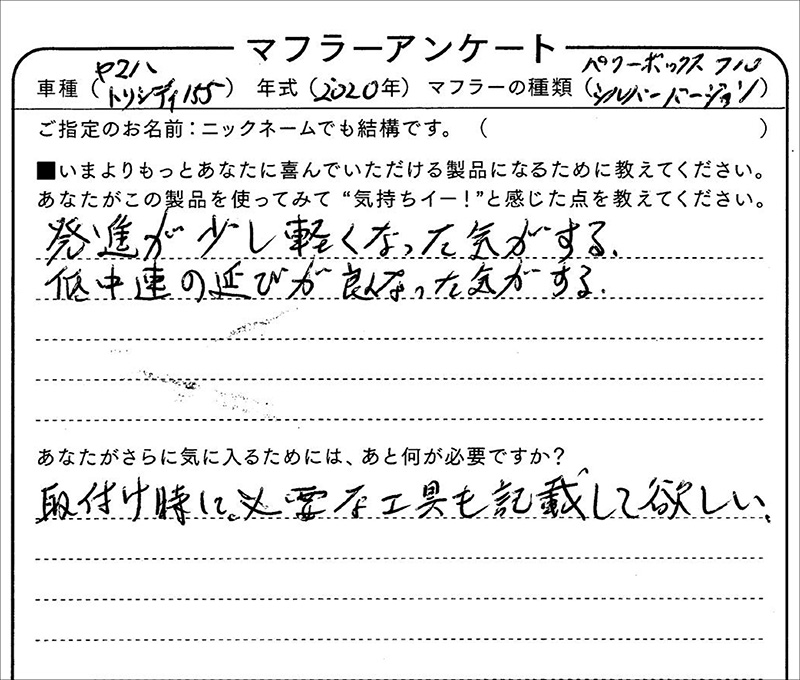 マフラーアンケート
車種（ヤマハ トリシティ155）　年式（2020年）　マフラーの種類（パワーボックス フルシルバーバージョン）
ご指定のお名前：ニックネームでも結構です。（　　　　　）
■いまよりもっとあなたに喜んでいただける製品になるために教えてください。
あなたがこの製品を使ってみて“気持ちイー！”と感じた点を教えてください。
発進が少し軽くなった気がする.
低中速の延びが良くなった気がする.
あなたがさらに気に入るためには、あと何が必要ですか？
取付け時に必要な工具も記載して欲しい.